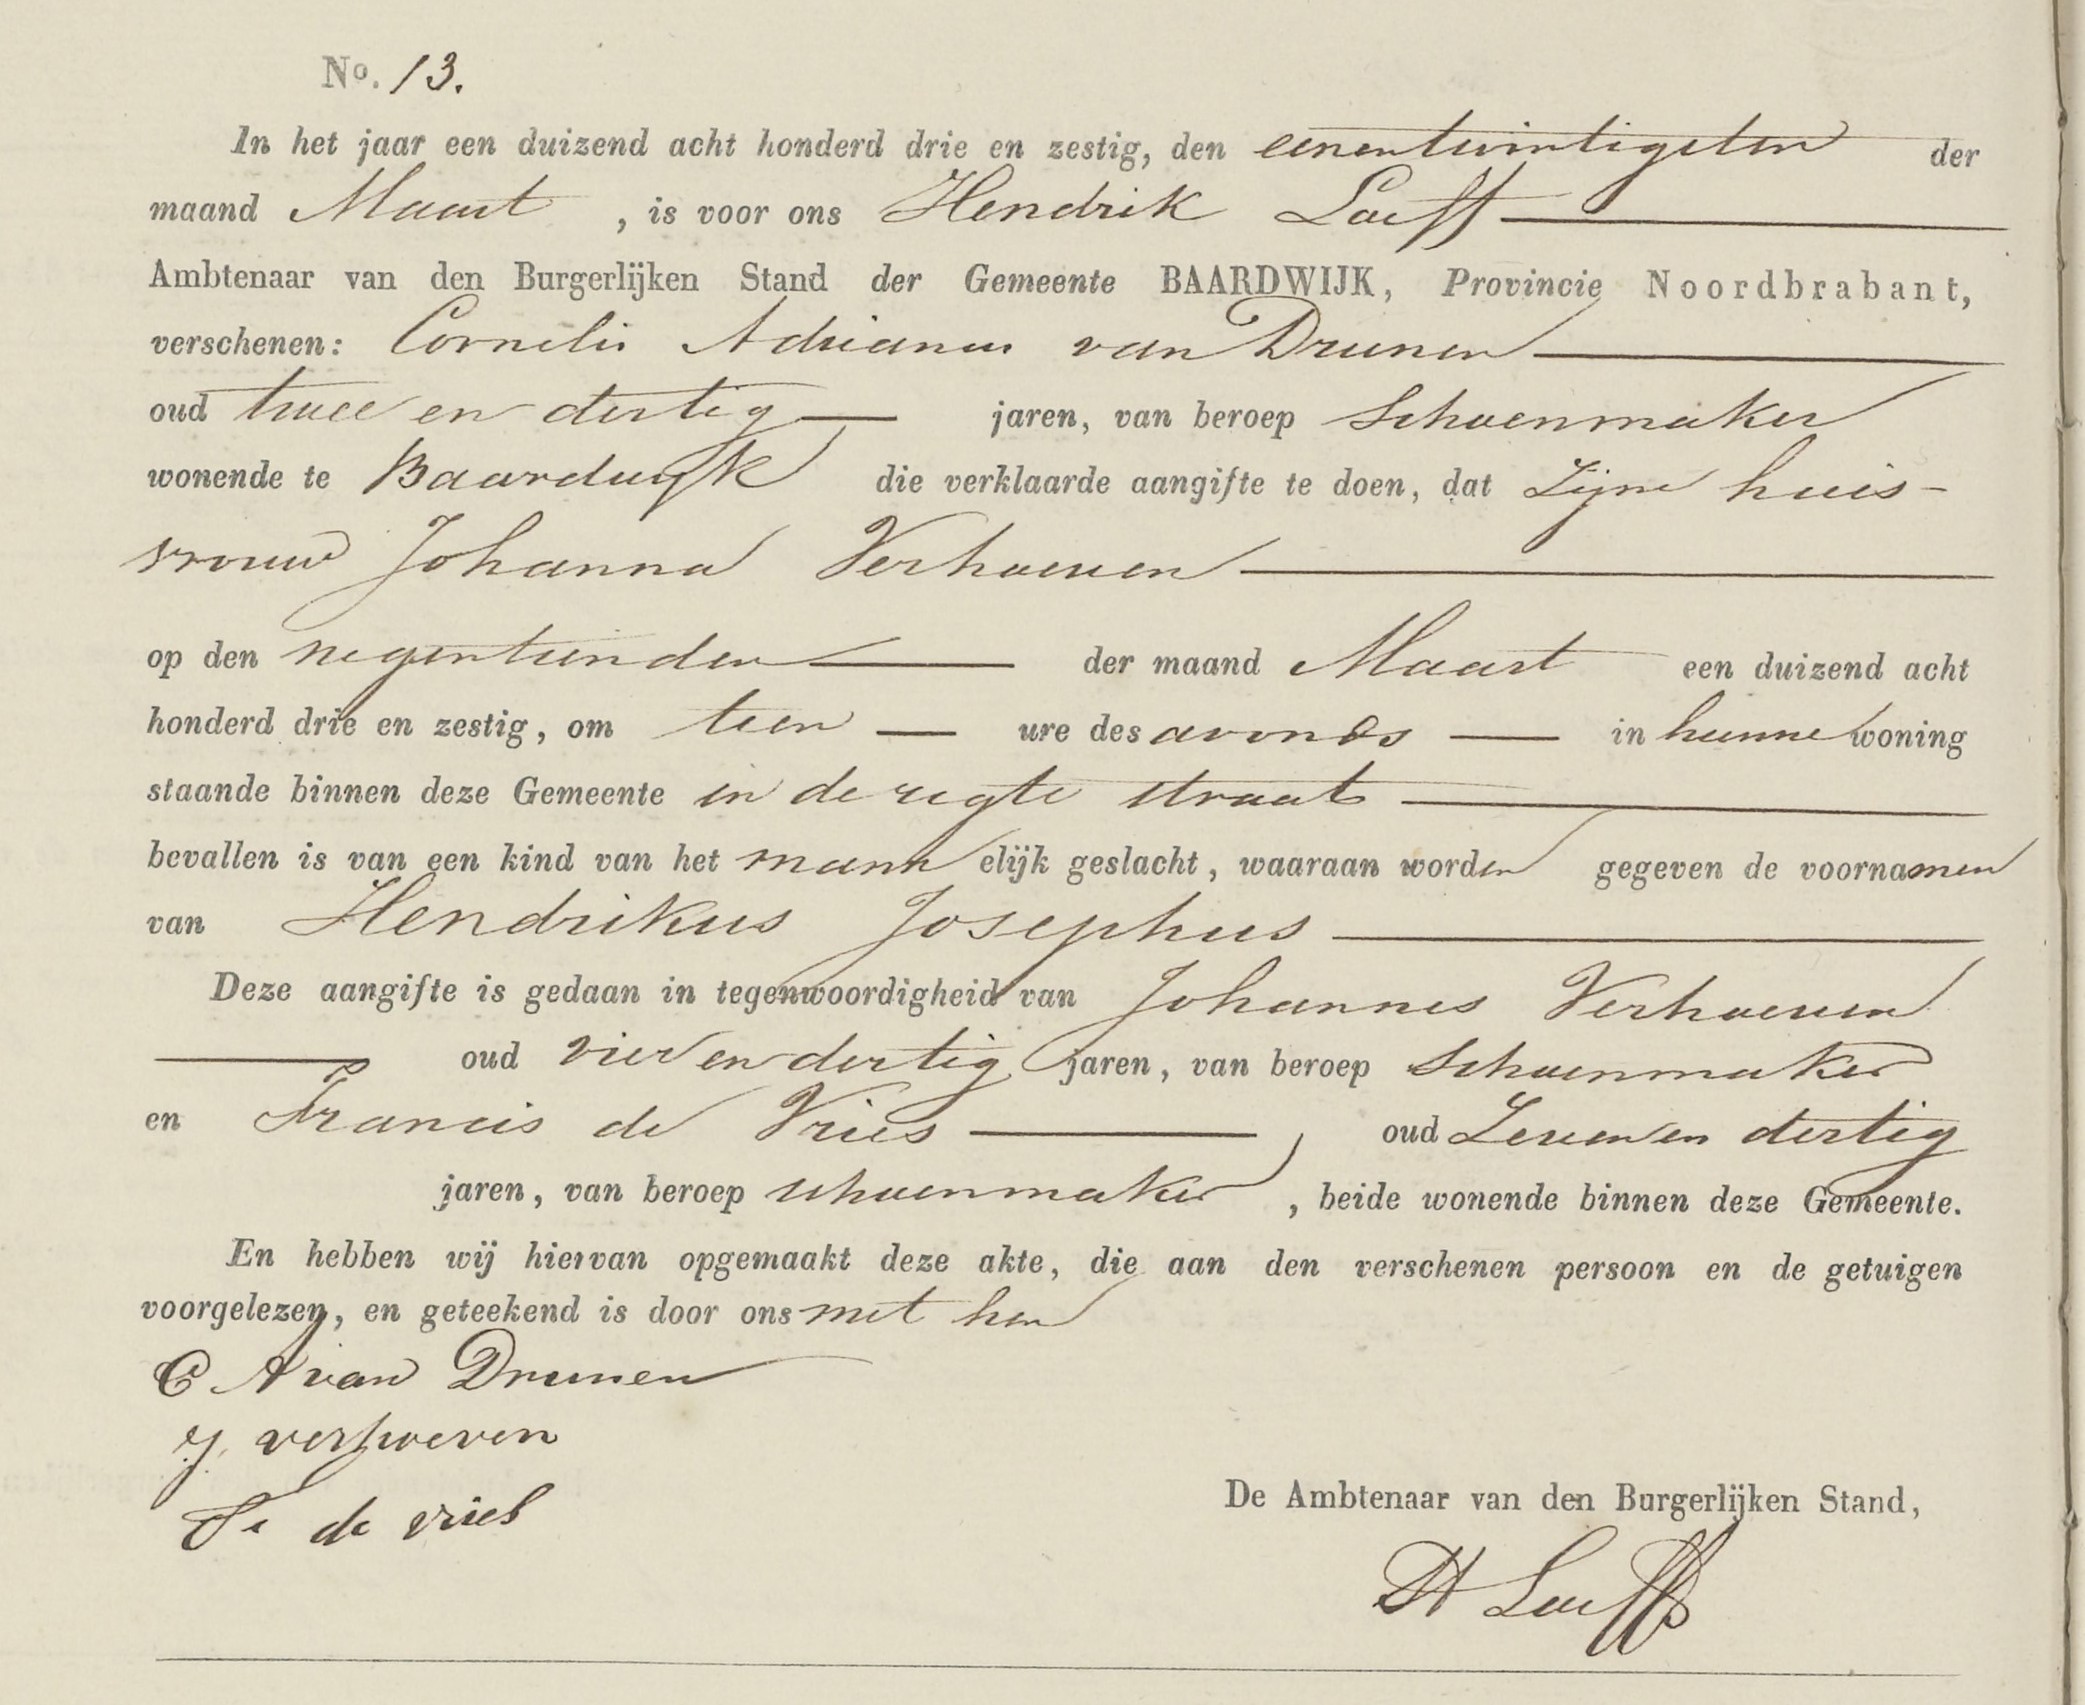 No. 13.
In het jaar een duizend acht honderd drie en zestig, den eenentwintigsten der
maand Maart , is voor ons Hendrik Loeff
Ambtenaar van den Burgerlijken Stand der Gemeente BAARDWIJK, Provincie Noordbrabant,
verschenen: Cornelis Adrianus van Drunen
oud twee en dertig jaren, van beroep schoenmaker
wonende te Baardwijk die verklaarde aangifte te doen, dat zijne huis-
vrouw Johanna Verhoeven
op den negentienden der maand Maart een duizend acht
honderd drie en zestig, om tien ure des avonds in hunne woning
staande binnen deze Gemeente in de regte straat
bevallen is van een kind van het mannelijk geslacht, waaraan worden gegeven de voornamen
van Hendrikus Josephus
Deze aangifte is gedaan in tegenwoordigheid van Johannes Verhoeven
oud vier en dertig jaren, van beroep schoenmaker
en Francis de Vries oud zeven en dertig
jaren, van beroep schoenmaker , beide wonende binnen deze Gemeente.
En hebben wij hiervan opgemaakt deze akte, die aan den verschenen persoon en de getuigen
voorgelezen, en geteekend is door ons met hen
C A van Drunen
J. verhoeven
Fs de vries
De Ambtenaar van den Burgerlijken Stand,
H Loeff